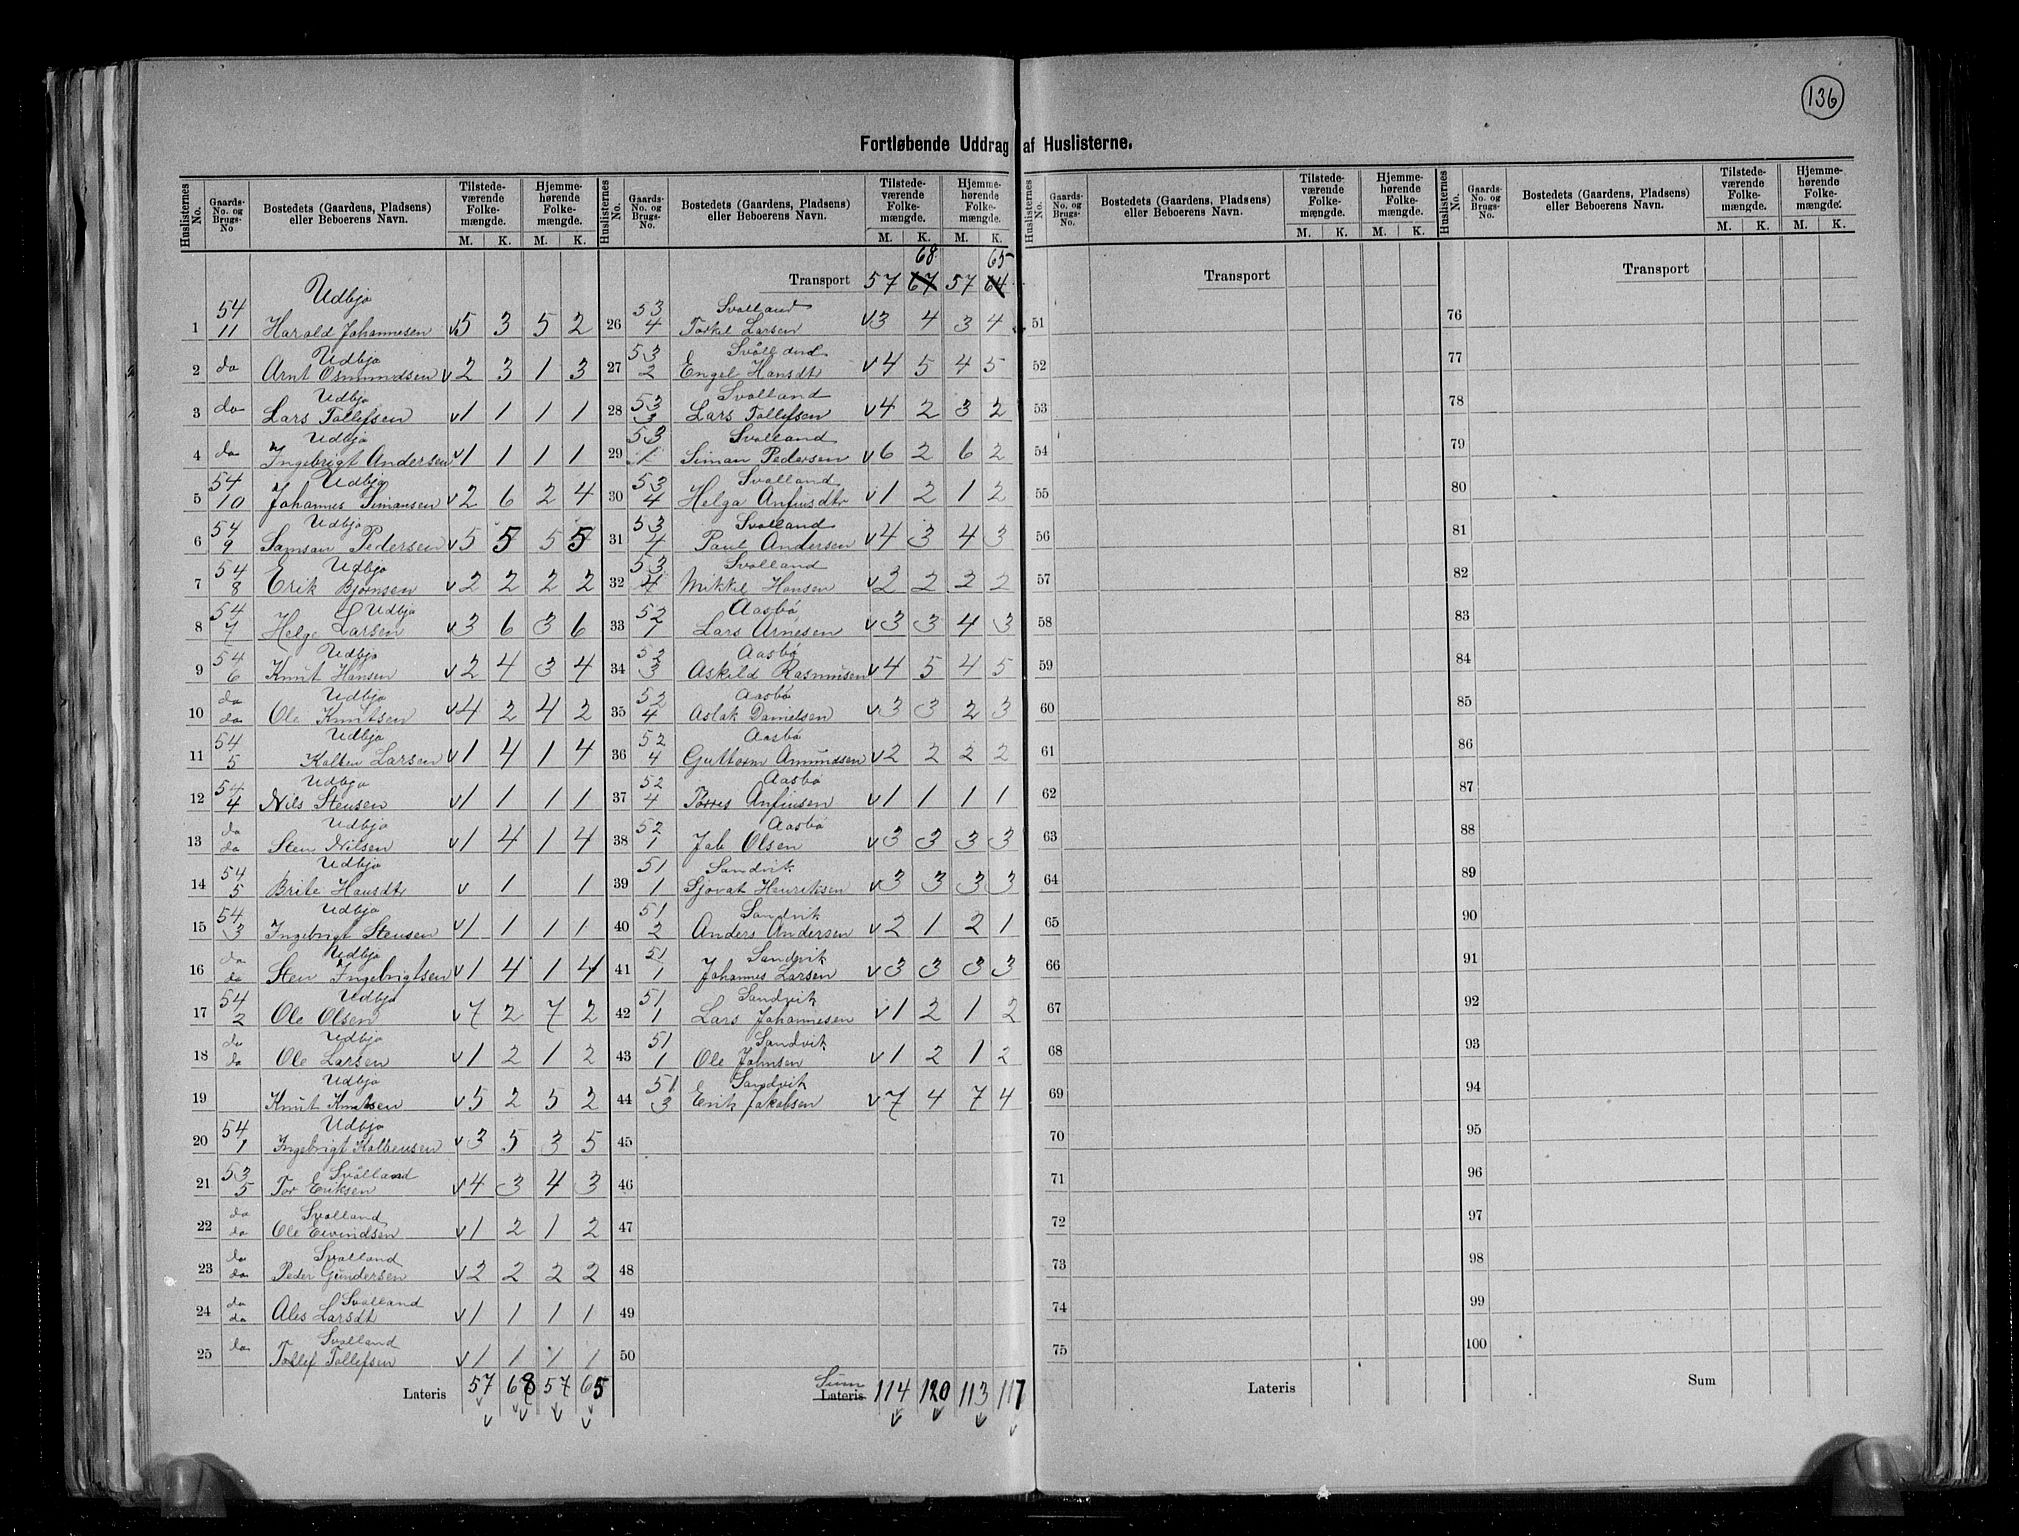 136
Fortløbende Uddrag af Huslisterne.
Huslisternes No. Gaards-No. og Brugs-No. Bostedets (Gaardens, Pladsens) eller Beboerens Navn. Tilstedeværende Folkemængde. M. K. Hjemmehørende Folkemængde. M. K.
Udbjo
1 54 11 Harald Johannesen v5 3 5 2
Udbjo
2 do Arnt Osmundsen v2 3 1 3
Udbjo
3 do Lars Tollefsen v1 1 1 1
Udbjo
4 do Ingebrigt Andersen v1 1 1 1
Udbjo
5 54 10 Johannes Simonsen v2 6 2 4
Udbjo
6 54 9 Samson Pedersen v5 5 5 5
Udbjo
7 54 8 Erik Bjørnsen v2 2 2 2
Udbjo
8 54 7 Helge Larsen v3 6 3 6
Udbjo
9 54 6 Knut Hansen v2 4 3 4
Udbjo
10 do do Ole Knutsen v4 2 4 2
Udbjo
11 54 5 Kolben Larsen v1 4 1 4
Udbjo
12 54 4 Nils Stensen v1 1 1 1
Udbjo
13 do do Sten Nilsen v1 4 1 4
Udbjo
14 54 5 Brite Hansdtr v 1 1
Udbjo
15 54 3 Ingebrigt Stensen v1 1 1 1
Udbjo
16 do do Sten Ingebrigtsen v1 4 1 4
Udbjo
17 54 2 Ole Olsen v7 2 7 2
Udbjo
18 do do Ole Larsen v1 2 1 2
Udbjo
19 Knut Knutsen v5 2 5 2
Udbjo
20 54 1 Ingebrigt Kolbensen v3 5 3 5
Svolland
21 53 5 Tor Eriksen v4 3 4 3
Svolland
22 do do Ole Eivindsen v1 2 1 2
Svolland
23 do do Peder Gundersen v2 2 2 2
Svolland
24 do do Ales Larsdt v1 1 1 1
Svolland
25 do Tollef Tollefsen v1 1 1 1
Lateris 57 68 57 65
Huslisternes No. Gaards-No. og Brugs-No. Bostedets (Gaardens, Pladsens) eller Beboerens Navn. Tilstedeværende Folkemængde. M. K. Hjemmehørende Folkemængde. M. K.
68 65
Transport 57 67 57 64
Svolland
26 53 4 Torkel Larsen v3 4 3 4
Svolland
27 53 2 Engel Hansdt v4 5 4 5
Svolland
28 53 3 Lars Tollefsen v4 2 3 2
Svolland
29 53 1 Simon Pedersen v6 2 6 2
Svolland
30 53 4 Helga Anfinsdtr v1 2 1 2
Svolland
31 53 4 Paul Andersen v4 3 4 3
Svolland
32 53 4 Mikkel Hansen v2 2 2 2
Aasbø
33 52 1 Lars Arnesen v3 3 4 3
Aasbø
34 52 3 Askild Rasmusen v4 5 4 5
Aasbø
35 52 4 Aslak Danielsen v3 3 2 3
Aasbø
36 52 4 Guttorm Amundsen v2 2 2 2
Aasbø
37 52 4 Torres Anfinsen v1 1 1 1
Aasbø
38 52 1 Job Olsen v3 3 3 3
Sandvik
39 51 1 Sjovat Henriksen v3 3 3 3
Sandvik
40 51 2 Anders Andersen v2 1 2 1
Sandvik
41 51 1 Johannes Larsen v3 3 3 3
Sandvik
42 51 1 Lars Johannesen v1 2 1 2
Sandvik
43 51 1 Ole Johnsen v1 2 1 2
Sandvik
44 51 3 Erik Jakobsen v7 4 7 4
45
46
47
48
49
50
Sum
Lateris 114 120 113 117
Huslisternes No. Gaards-No. og Brugs-No. Bostedets (Gaardens, Pladsens) eller Beboerens Navn. Tilstedeværende Folkemængde. M. K. Hjemmehørende Folkemængde. M. K.
Transport
51
52
53
54
55
56
57
58
59
60
61
62
63
64
65
66
67
68
69
70
71
72
73
74
75
Lateris
Huslisternes No. Gaards-No. og Brugs-No. Bostedets (Gaardens, Pladsens) eller Beboerens Navn. Tilstedeværende Folkemængde. M. K. Hjemmehørende Folkemængde. M. K.
Transport
76
77
78
79
80
81
82
83
84
85
86
87
88
89
90
91
92
93
94
95
96
97
98
99
100
Sum